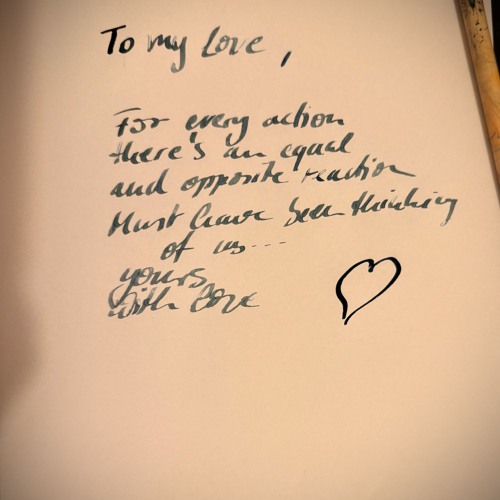 To my Love,
For every action
there's an equal
and opposite reaction
Must have been thinking
of us...
yours
with love